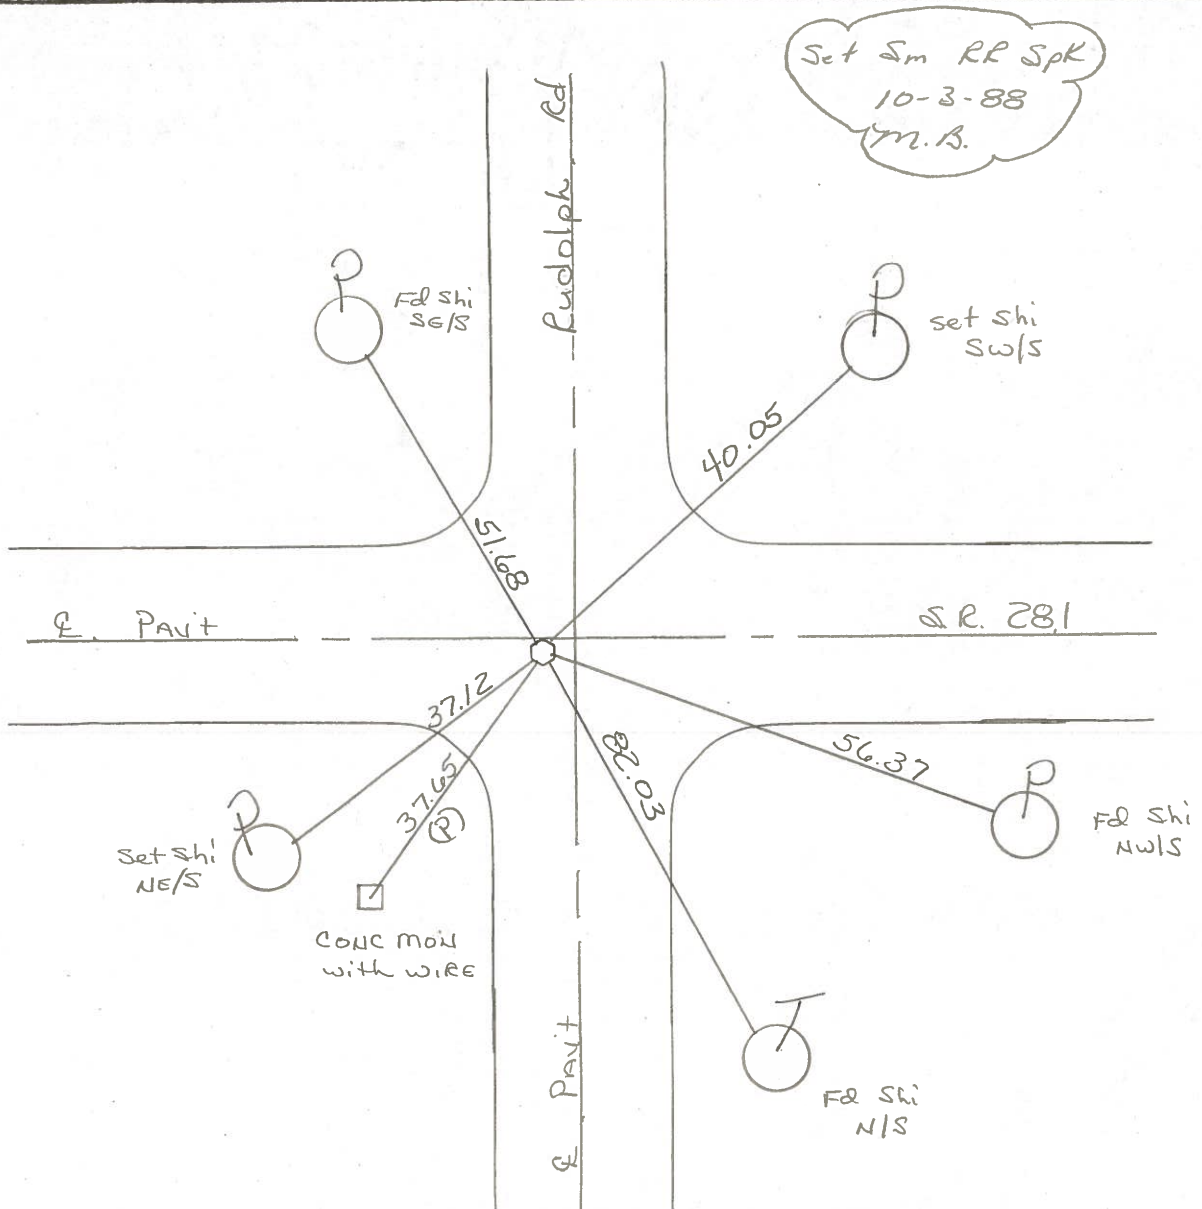 Set Sm RR Spk
10-3-88
M.B.
Rudolph Rd
P
Fd Shi
SE/S
P
Set Shi
SW/S
40.05
51.68
℄ PAV't
S.R. 281
37.12
37.65
(P)
82.03
56.37
P
Fd Shi
NW/S
P
Set Shi
NE/S
CONC MON
with WIRE
T
Fd Shi
N/S
℄ PAV't